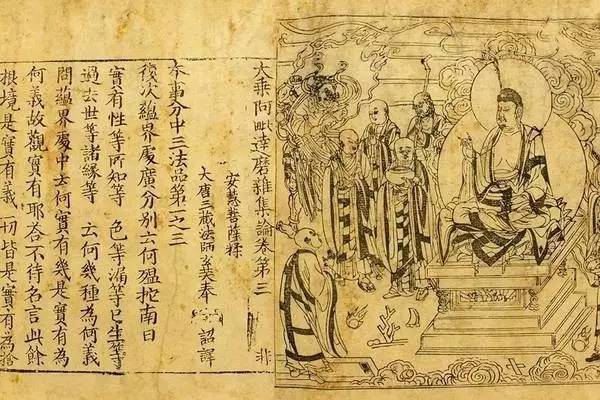 大乘阿毗達磨雜集論卷第三 非
安慧菩薩糅
大唐三藏法師玄奘奉 詔譯
本事分中三法品第一之三
復次蘊界處廣分別云何殟拕南曰
實有性等所知等 色等漏等已生等
過去世等諸緣等 云何幾種為何義
問蘊界處中云何實有幾是實有為
何義故觀實有耶荅不待名言此餘
根境是實有義一切皆是實有為捨